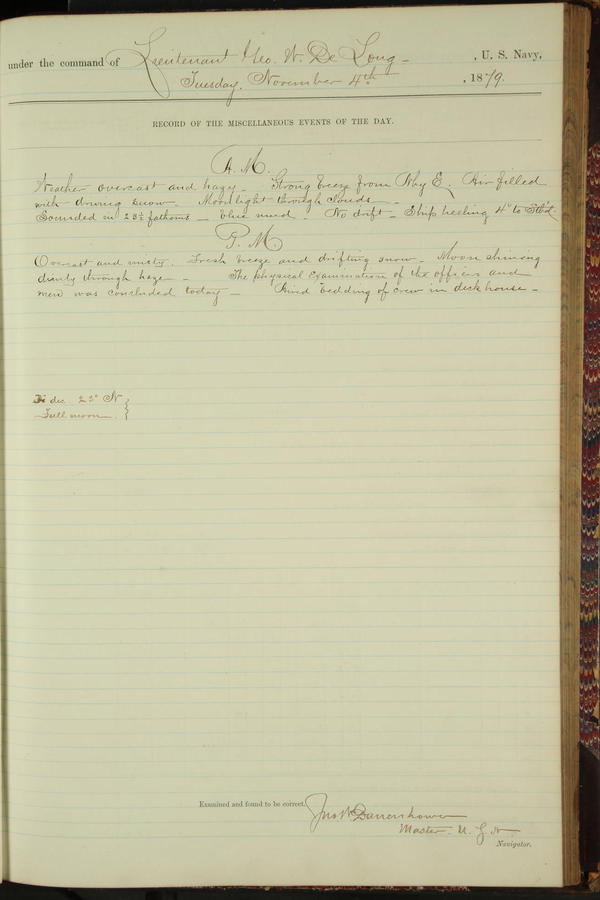 under the command of Lieutenant Geo. W. De Long - , U. S. Navy,
Tuesday, November 4th , 1879.
RECORD OF THE MISCELLANEOUS EVENTS OF THE DAY.
A. M.
Weather overcast and hazy - Strong breeze from N by E. Air filled
with driving snow - Moonlight through clouds -
Sounded in 23½ fathoms - blue mud. No drift - Ship heeling 4° to Stbd.
P. M.
Overcast and misty. Fresh breeze and drifting snow - Moon shining
dimly through haze - The physical examination of the officers and
men was concluded today - Aired bedding of crew in deck house -
dec 23° N
Full moon
Examined and found to be correct.
Jno W Danenhower
Master. U. S. N
Navigator.